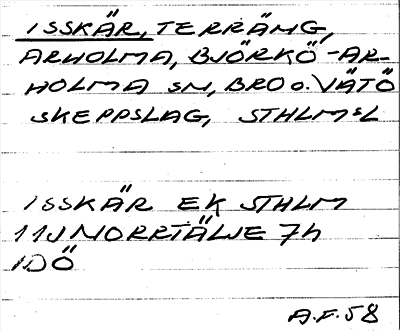 ISSKÄR, TERRÄNG,
ARHOLMA, BJÖRKÖ-AR-
HOLMA SN, BRO O. VÄTÖ
SKEPPSLAG, STHLMSL
ISSKÄR EK STHLM
11J NORRTÄLJE 7h
IDÖ
A.F. 58